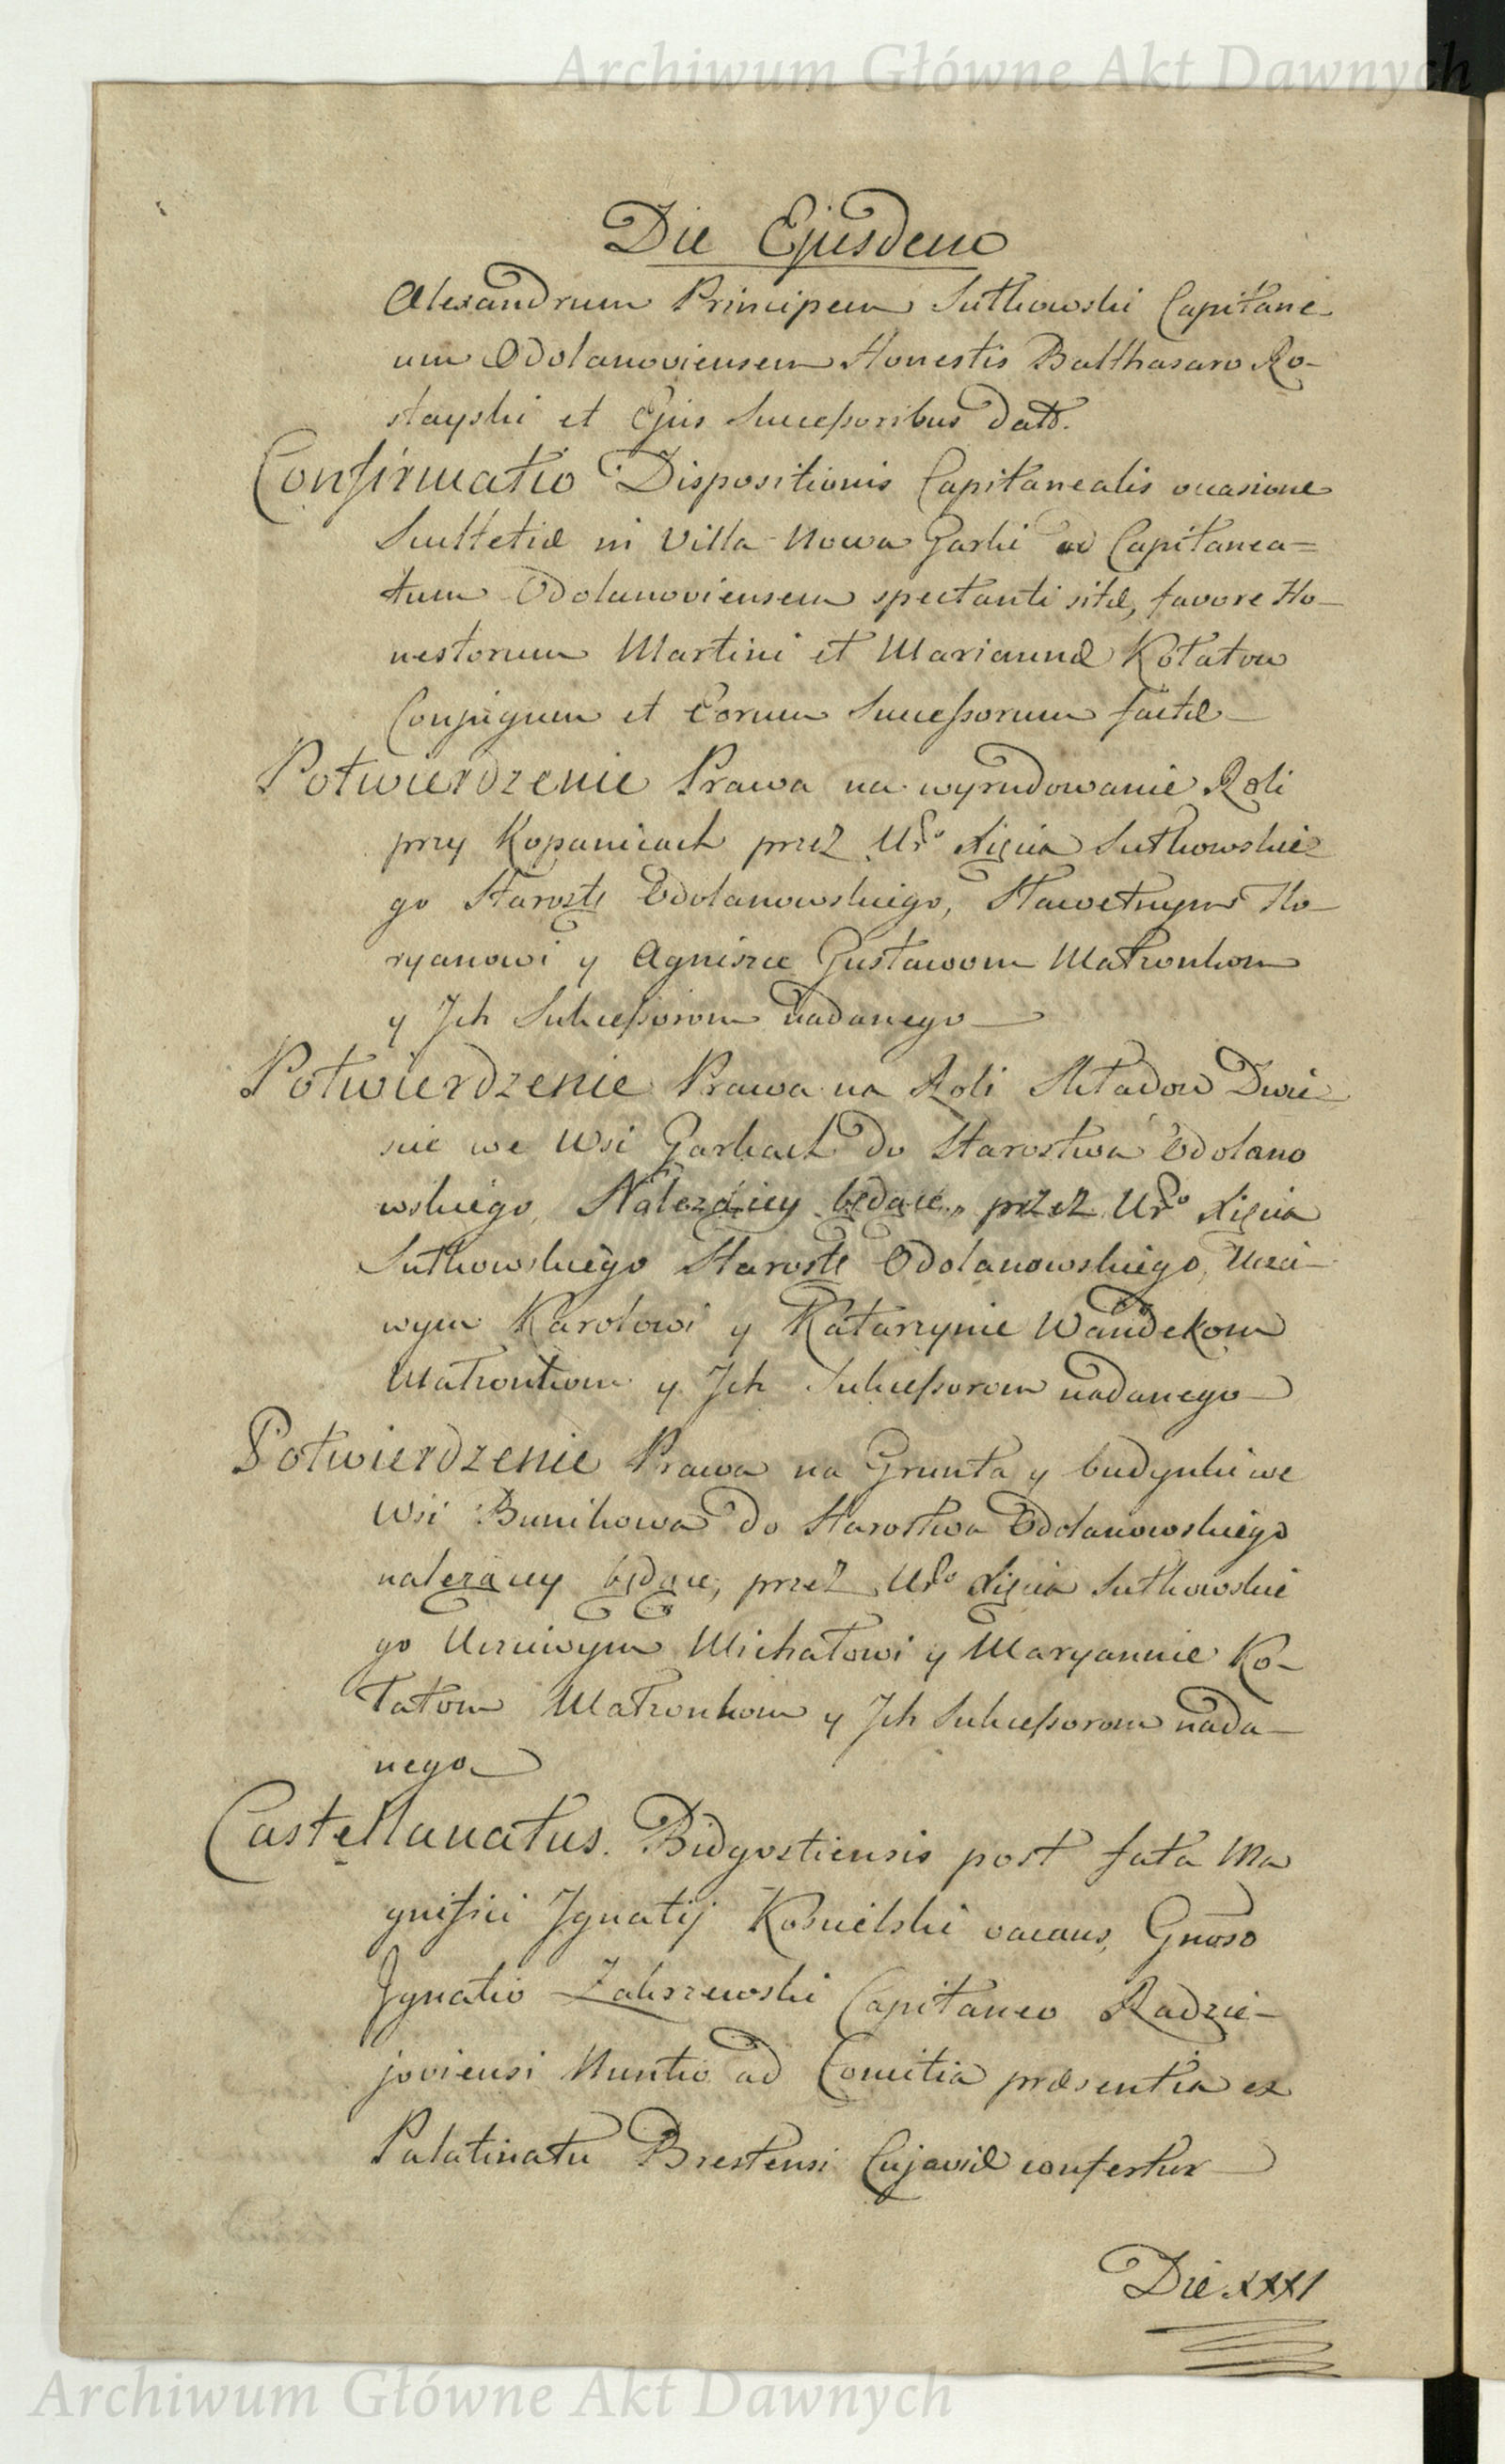 Archiwum Główne Akt Dawnych
Die Ejusdem
Alexandrum Principem Sułkowski Capitane
um Odolanoviensem Honestis Balthasaro Ro-
stayski et Ejus Successoribus dato.
Confirmatio Dispositionis Capitanealis occasione
Scultetiæ in Villa Nowa Garki ad Capitanea=
tum Odolanoviensem spectanti sitæ, favore Ho-
nestorum Martini et Mariannæ Kołatow
Conjugum et Eorum Successorum factæ
Potwierdzenie Prawa na wyrudowanie Roli
przy Kopanicach przez Uro Xięcia Sułkowskie-
go Starostę Odolanowskiego, Sławetnym Flo-
ryanowi y Agniszce Gustawom Małżonkom
y Jch Sukcessorom nadanego
Potwierdzenie Prawa na Roli Składow Dwie-
scie we Wsi Garkach do Starostwa Odolano
wskiego Należącey będące, przez Uro Xięcia
Sułkowskiego Starostę Odolanowskiego, Uczci-
wym Karolowi y Katarzynie Wandekom
Małżonkom y Jch Sukcessorom nadanego
Potwierdzenie Prawa na Grunta y budynki we
Wsi Bunikowa do Starostwa Odolanowskiego
należącey będące, przez Uro Xięcia Sułkowskie
go Uczciwym Michałowi y Maryannie Ko-
łatom Małżonkom y Jch Sukcessorom nada-
nego
Castellanatus Bidgostiensis post fata Ma
gnifici Jgnatij Kościelski vacans, Gnoso
Jgnatio Zakrzewski Capitaneo Radzie-
joviensi Nuntio ad Comitia præsentia ex
Palatinatu Brestensi Cujaviæ confertur
Die XXXI
Archiwum Główne Akt Dawnych